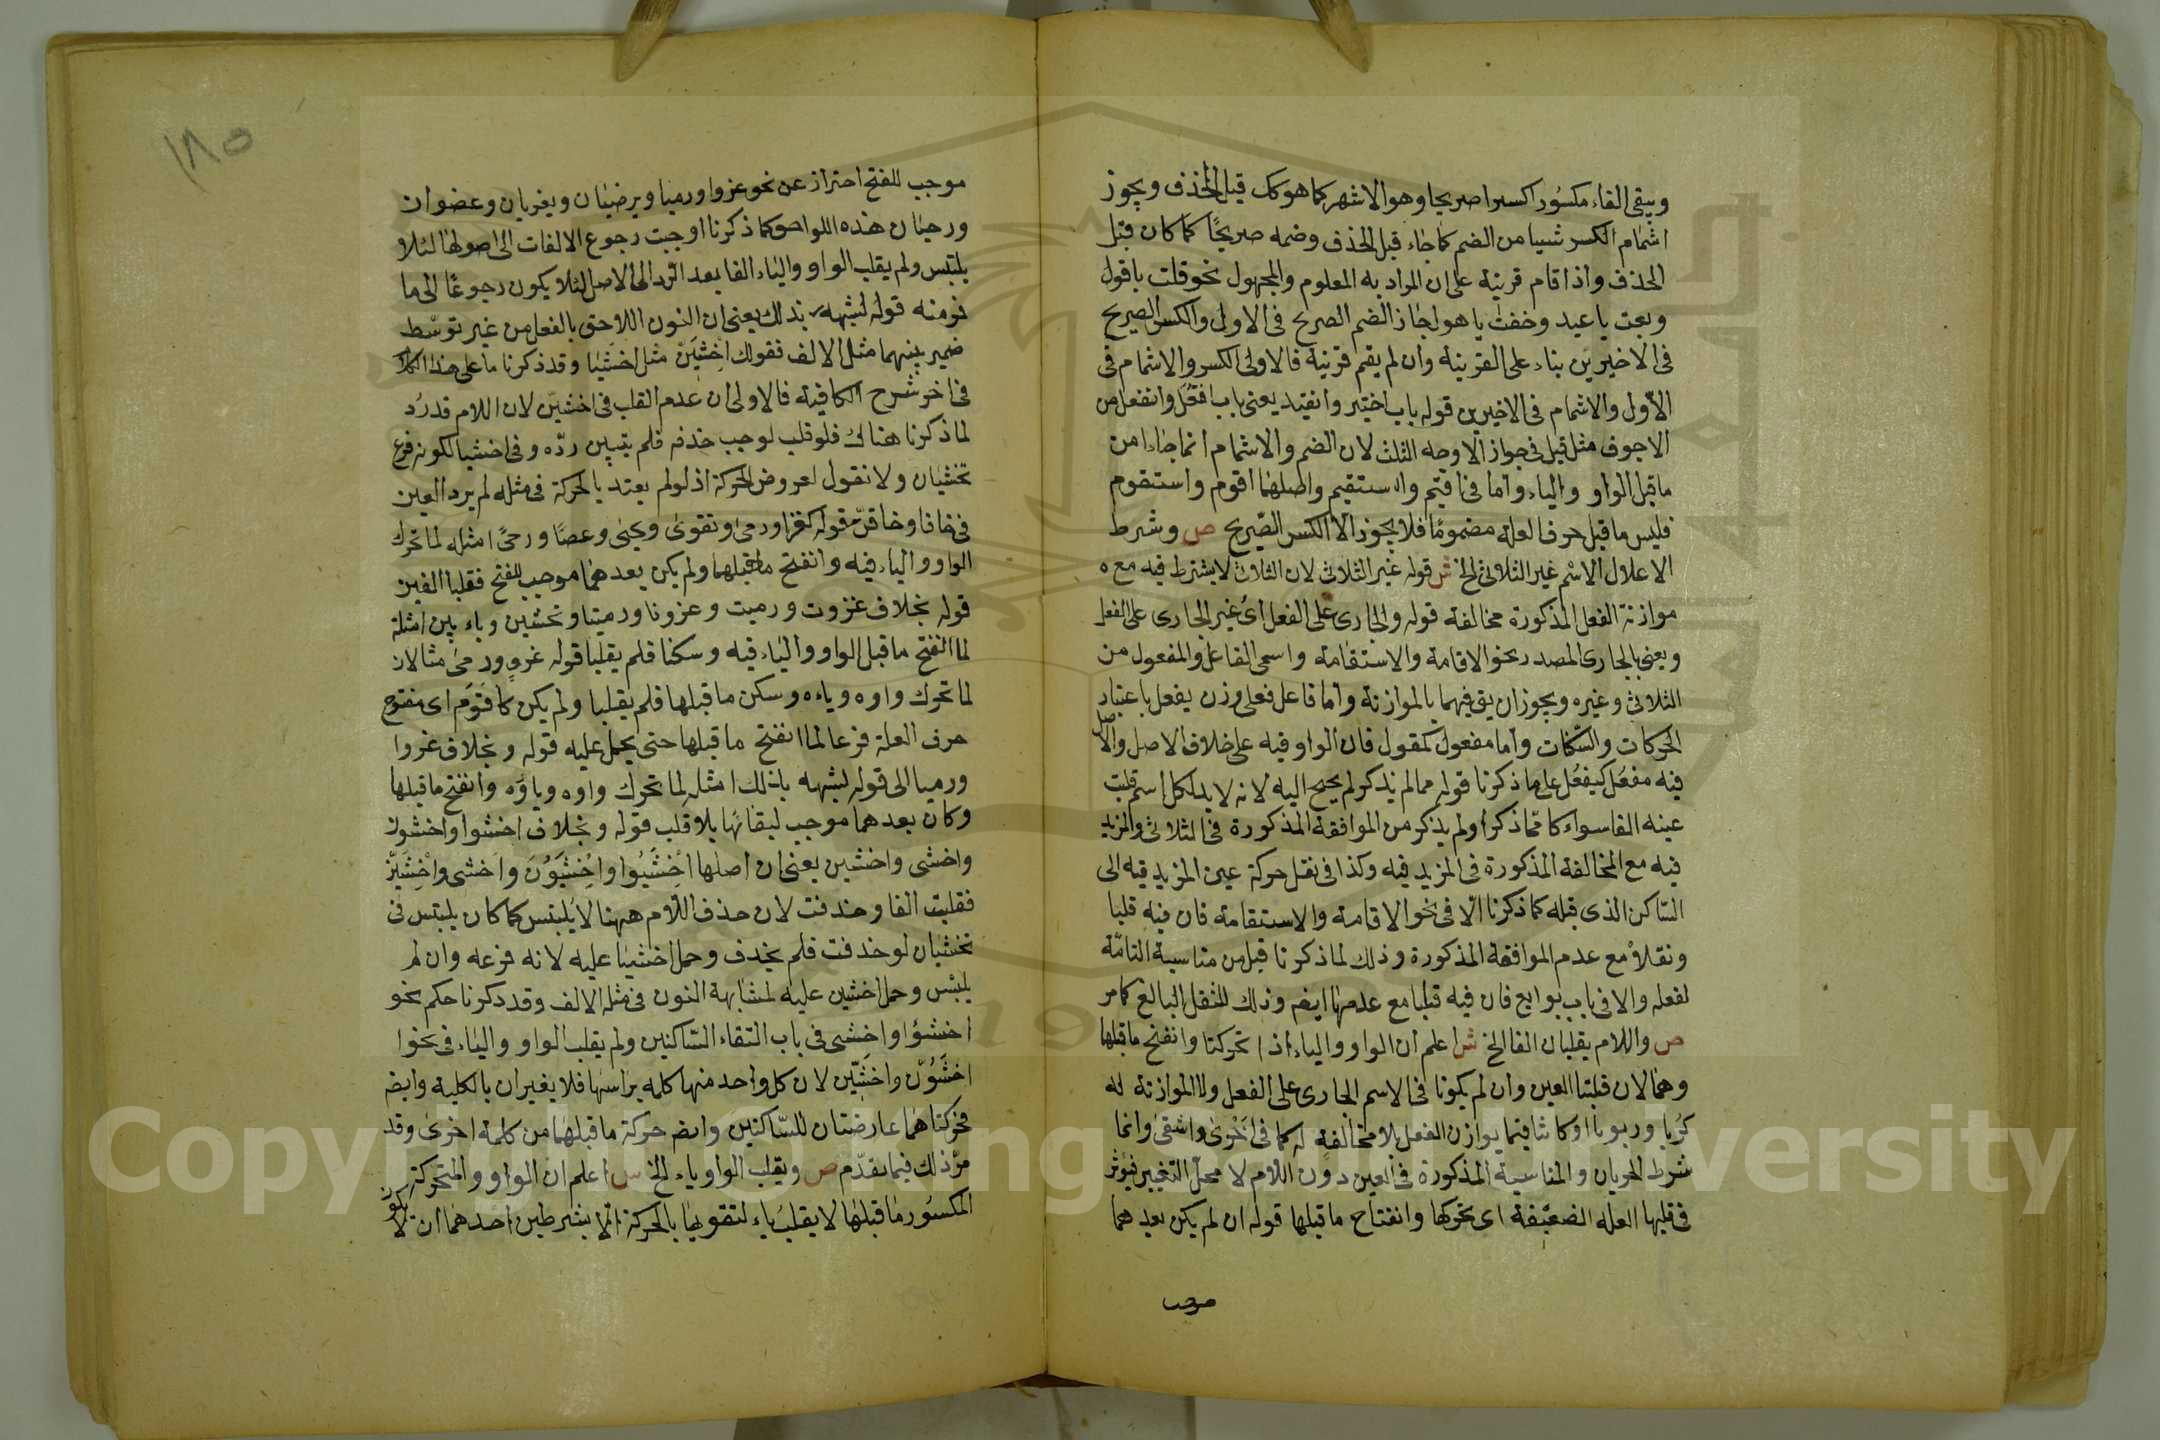 ويبقى الفاء مكسورا كسرا صريحا وهو الاشهر كما هو كك قبل الحذف ويجوز
اشمام الكسر شيا من الضم كما جاء قبل الحذف وضمه صريحًا كما كان قبل
الحذف واذا قام قرينة على ان المراد به المعلوم والمجهول نحو قلت يا قول
وبعت يا عبد وخفت يا هول جاز الضم الصريح في الاول والكسر الصريح
في الاخيرين بناء على القرينة وان لم يقم قرينة فالاولى الكسر والاشمام في
الاول والاشمام في الاخيرين قوله باب اختير وانقيد يعني باب افتعل وانفعل من
الاجوف مثل قيل في جواز الاوجه الثلث لان الضم والاشمام انما جاءا من
ما قبل الواو والياء واما في اقيم واستقيم واصلهما اقوم واستقوم
فليس ما قبل حرف العلة مضمومًا فلا يجوز الا الكسر الصريح ص وشرط
الاعلال الاسم غير الثلاثي الخ ش قوله غير الثلاثي لان الثلاثي لا يشترط فيه مع ه
موازنة الفعل المذكورة مخالفة قوله والجارى على الفعل اى غير الجارى على الفعل
ويعنى بالجارى المصدر نحو الاقامة والاستقامة واسمى الفاعل والمفعول من
الثلاثي وغيره ويجوز ان يق فيهما بالموازنة واما فاعل فعلى وزن يفعل باعتبار
الحركات والسكنات واما مفعول كمقول فان الواو فيه على خلاف الاصل والاصل
فيه مفعل كيفعل على ما ذكرنا قوله مما لم يذكر لم يحتج اليه لانه لا بد لكل اسم قلبت
عينه الفا سواء كا مما ذكر او لم يذكر من الموافقة المذكورة في الثلاثي والمزيد
فيه مع المخالفة المذكورة في المزيد فيه وكذا في نقل حركة عين المزيد فيه الى
الساكن الذى قبله كما ذكرنا الا في نحو الاقامة والاستقامة فان فيه قلبا
ونقلا مع عدم الموافقة المذكورة وذلك لما ذكرنا قبل من مناسبة التامة
لفعله والا في باب بوايع فان فيه قلبا مع عدمها ايضا وذلك للثقل البالغ كما مر
ص واللام يقلبان الفا الخ ش اعلم ان الواو والياء اذا تحركتا وانفتح ما قبلها
وهما لان قلبتا العين وان لم يكونا في الاسم الجارى على الفعل ولا الموازنة له
كربا وربوبا او كانتا فيما يوازن الفعل بلا مخالفة له كما في اخزى واشقى وانما
شرط الجريان والمناسبة المذكورة في العين دون اللام لا محل التغيير فيؤثر
في قلبها العلة الضعيفة اى تحركها وانفتاح ما قبلها قوله ان لم يكن بعدهما
موجب
١٨٥
موجب للفتح احتراز عن نحو غزوا ورميا ويرضيان ويغزيان وعضوان
ورحيان هذه اللواحق كما ذكرنا اوجبت رجوع الالفات الى اصولها لئلا
يلتبس ولم يقلب الواو والياء الفا بعد الرد الى الاصل لئلا يكون رجوعًا الى ما
فر منه قوله لشبهه بذلك يعنى ان النون اللاحق بالفعل من غير توسط
ضمير بينهما مثل الالف فقولك اخشين مثل اخشيا وقد ذكرنا ما على هذا الكلا
في اخر شرح الكافية فالاولى ان عدم القلب في اخشين لان اللام قد رد
لما ذكرنا هناك فلو قلب لوجب حذفه فلم يتبين رده وفي اخشيا لكونه فرع
تخشيان ولا نقول لعروض الحركة اذ لو لم يعتد بالحركة في مثله لم يرد العين
في خافا وخافن قوله كغزا ورمى وتقوى ويحيى وعصا ورحى امثلة لما تحرك
الواو والياء فيه وانفتح ما قبلهما ولم يكن بعدهما موجب للفتح فقلبا الفين
قوله بخلاف غزوت ورميت وغزونا ورمينا وتخشين وياء يين امثلة
لما انفتح ما قبل الواو والياء فيه وسكنا فلم يقلبا قوله غزو ورمى مثالان
لما تحرك واوه وياءه وسكن ما قبلها فلم يقلبا ولم يكن كاقوم اى مفتوح
حرف العلة فرعا لما انفتح ما قبلها حتى يحمل عليه قوله وبخلاف غزوا
ورميا الى قوله لشبهه بذلك امثلة لما تحرك واوه وياؤه وانفتح ما قبلها
وكان بعدهما موجب لبقائها بلا قلب قوله وبخلاف اخشوا واخشون
واخشى واخشين يعنى ان اصلها اخشيوا واخشيون واخشى واخشين
فقلبت الفا وحذفت لان حذف اللام ههنا لا يلتبس كما كان يلتبس في
تخشيان لو حذفت فلم يحذف وحمل اخشيا عليه لانه فرعه وان لم
يلبس وحمل اخشين عليه لمشابهة النون في مثله الالف وقد ذكرنا حكم نحو
اخشوا واخشى في باب التقاء الساكنين ولم يقلب الواو والياء في نحو ا
اخشون واخشين لان كل واحد منها كلمه براسها فلا يغيران بالكلية وايض
فحركتاهما عارضتان للساكنين وايضا حركة ما قبلهما من كلمة اخرى وقد
مر ذلك فيما تقدم ص ويقلب الواو ياء الخ س اعلم ان الواو والمتحركة
المكسور ما قبلها لا يقلب ياء لتقويها بالحركة الا بشرطين احدهما ان لا يكون
Copyright © King Saud University